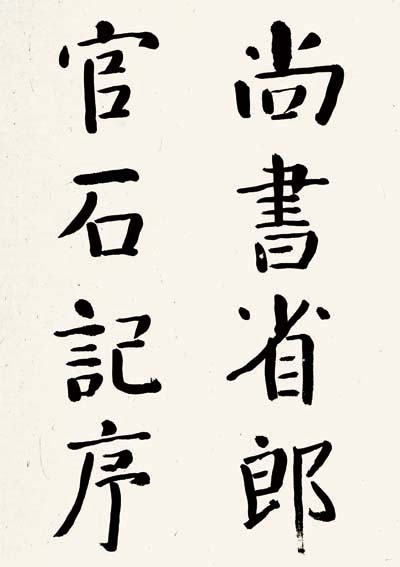 尚書省郎
官石記序